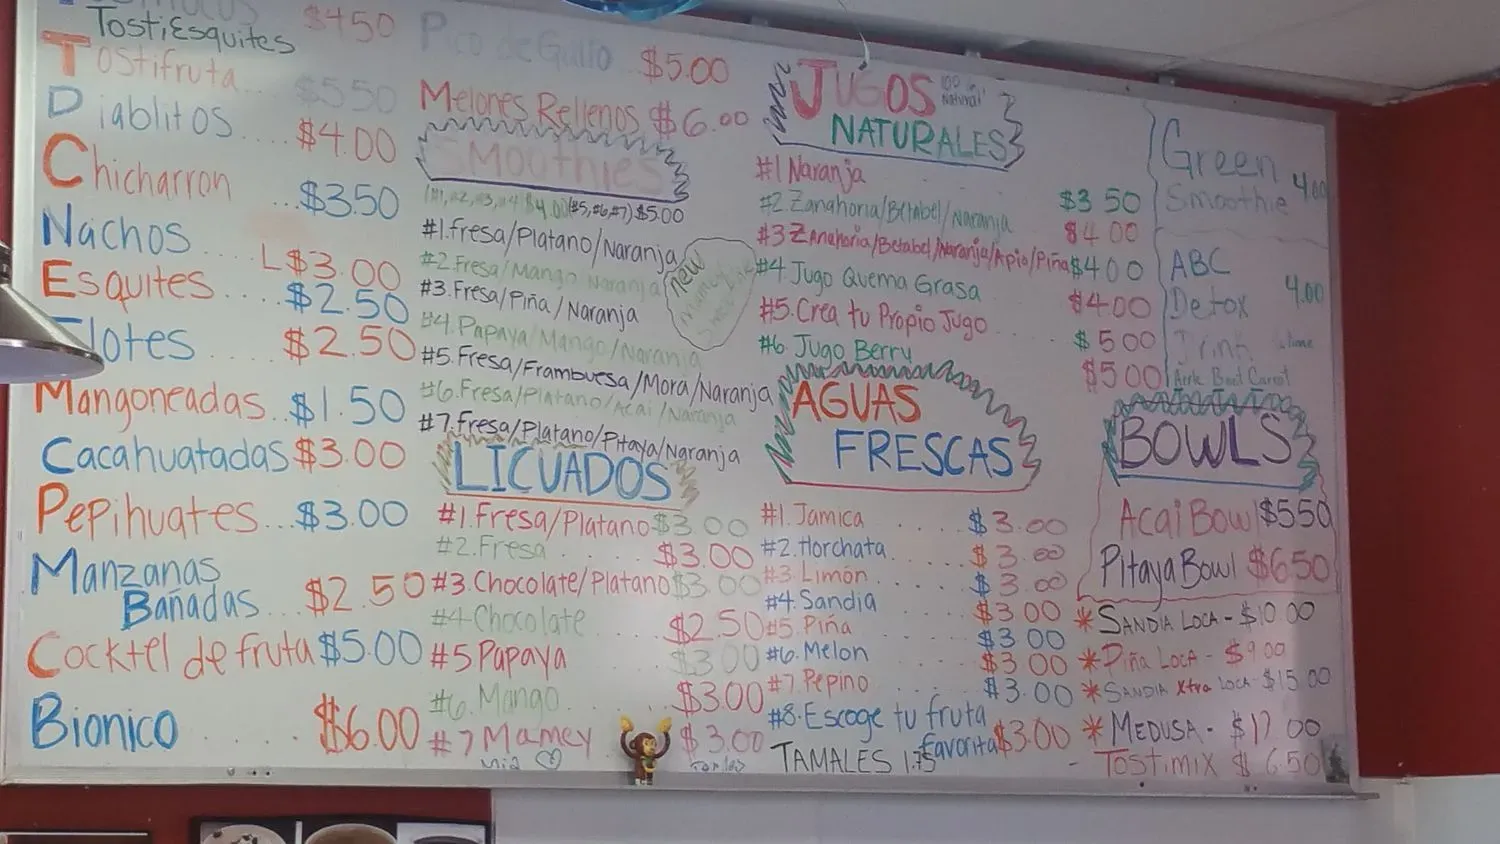 TostiEsquites $4.50
Tostifruta $5.50
Diablitos... $4.00
Chicharron ...$3.50
Nachos .... L $3.00
Esquites .... $2.50
Elotes .... $2.50
Mangoneadas.. $1.50
Cacahuatadas $3.00
Pepihuates...$3.00
Manzanas
Bañadas... $2.50
Cocktel de fruta $5.00
Bionico ..... $6.00
Pico de Gallo ..$5.00
Melones Rellenos $6.00
Smoothies
(#1,#2,#3,#4 $4.00 (#5,#6,#7) $5.00
#1.fresa/Platano/Naranja
#2.Fresa/Mango Naranja
#3.Fresa/Piña/Naranja
#4.Papaya/Mango/Naranja
#5.Fresa/Frambuesa/Mora/Naranja
#6.Fresa/Platano/Acai/Naranja
#7.Fresa/Platano/Pitaya/Naranja
new
LICUADOS
#1.Fresa/Platano $3.00
#2.Fresa ..... $3.00
#3.Chocolate/Platano $3.00
#4.Chocolate .... $2.50
#5 Papaya .... $3.00
#6. Mango .... $3.00
#7 Mamey $3.00
JUGOS
100% natural!
NATURALES
#1 Naranja $3.50
#2.Zanahoria/Betabel/Naranja $4.00
#3 Zanahoria/Betabel/Naranja/Apio/Piña $4.00
#4 Jugo Quema Grasa $4.00
#5.Crea tu Propio Jugo ... $5.00
#6. Jugo Berry $5.00
AGUAS
FRESCAS
#1. Jamica ..... $3.00
#2.Horchata..... $3.00
#3.Limón ..... $3.00
#4.Sandia ..... $3.00
#5. Piña ..... $3.00
#6.Melon ..... $3.00
#7.Pepino ..... $3.00
#8.Escoge tu fruta
favorita $3.00
TAMALES 1.75
Green
Smoothie 4.00
ABC
Detox 4.00
Drink
BOWLS
Acai Bowl $550
Pitaya Bowl $6.50
*SANDIA LOCA - $10.00
*Piña LOCA - $9.00
*SANDIA Xtra LOCA - $15.00
*MEDUSA - $17.00
- TOSTIMIX $6.50